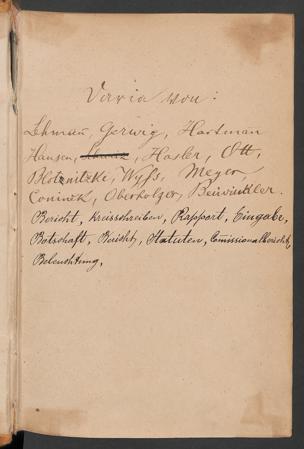 Varia von:
Lehmann, Gerwig, Hartman
Hansen, Schwarz, Hasler, Ott,
Blotznitzki, Wyß, Meyer,
Coninck, Oberholzer, Beüwinkler.
Bericht, Kreisschreiben, Rapport, Eingabe,
Botschaft, Bericht, Statuten, Comissionalbericht,
Beleuchtung,